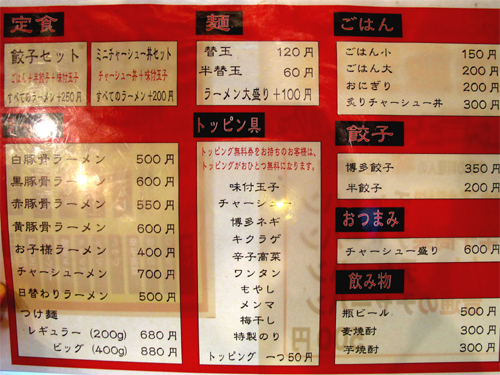 定食
餃子セット
ごはん+半餃子+味付玉子
すべてのラーメン+250円
ミニチャーシュー丼セット
チャーシュー丼+味付玉子
すべてのラーメン+200円
白豚骨ラーメン 500円
黒豚骨ラーメン 600円
赤豚骨ラーメン 550円
黄豚骨ラーメン 600円
お子様ラーメン 400円
チャーシューメン 700円
日替わりラーメン 500円
つけ麺
レギュラー (200g) 680円
ビッグ (400g) 880円
麺
替玉 120円
半替玉 60円
ラーメン大盛り+100円
トッピン具
トッピング無料券をお持ちのお客様は、
トッピングがおひとつ無料になります。
味付玉子
チャーシュー
博多ネギ
キクラゲ
辛子高菜
ワンタン
もやし
メンマ
梅干し
特製のり
トッピング 一つ50円
ごはん
ごはん小 150円
ごはん大 200円
おにぎり 200円
炙りチャーシュー丼 300円
餃子
博多餃子 350円
半餃子 200円
おつまみ
チャーシュー盛り 600円
飲み物
瓶ビール 500円
麦焼酎 300円
芋焼酎 300円